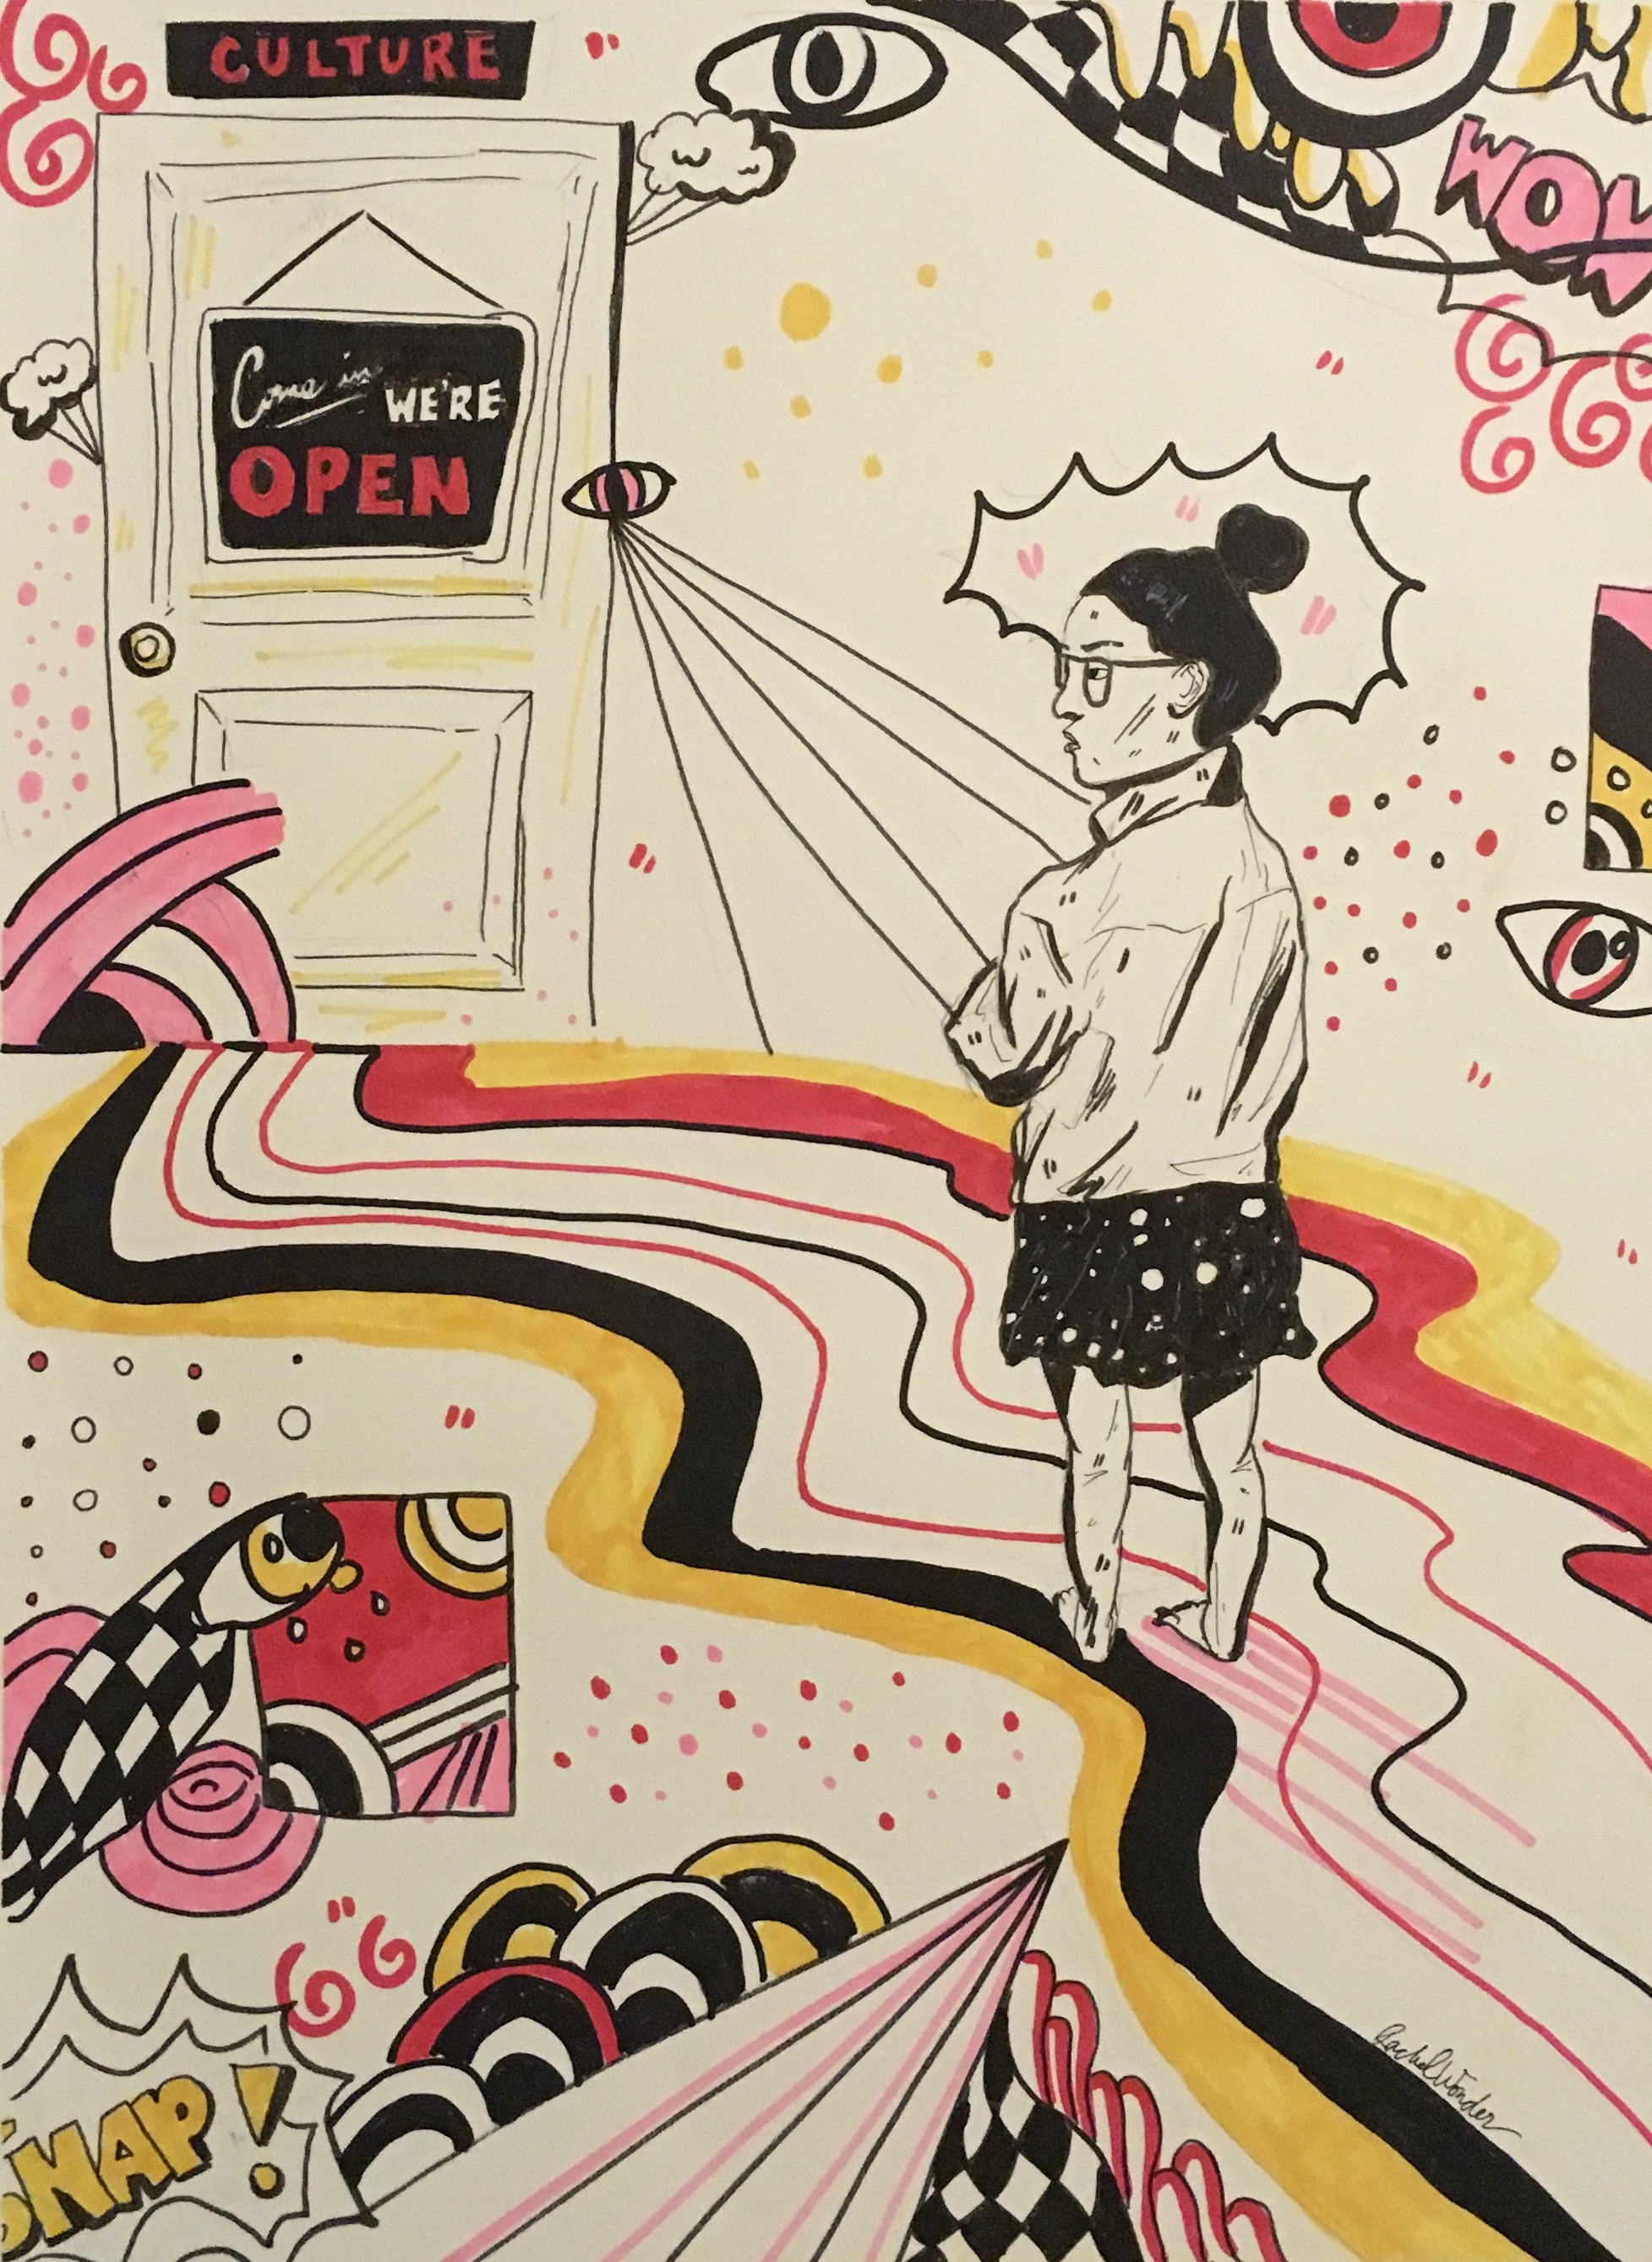 CULTURE
WOW
Come in WE'RE
OPEN
SNAP!
Rachel Wonder